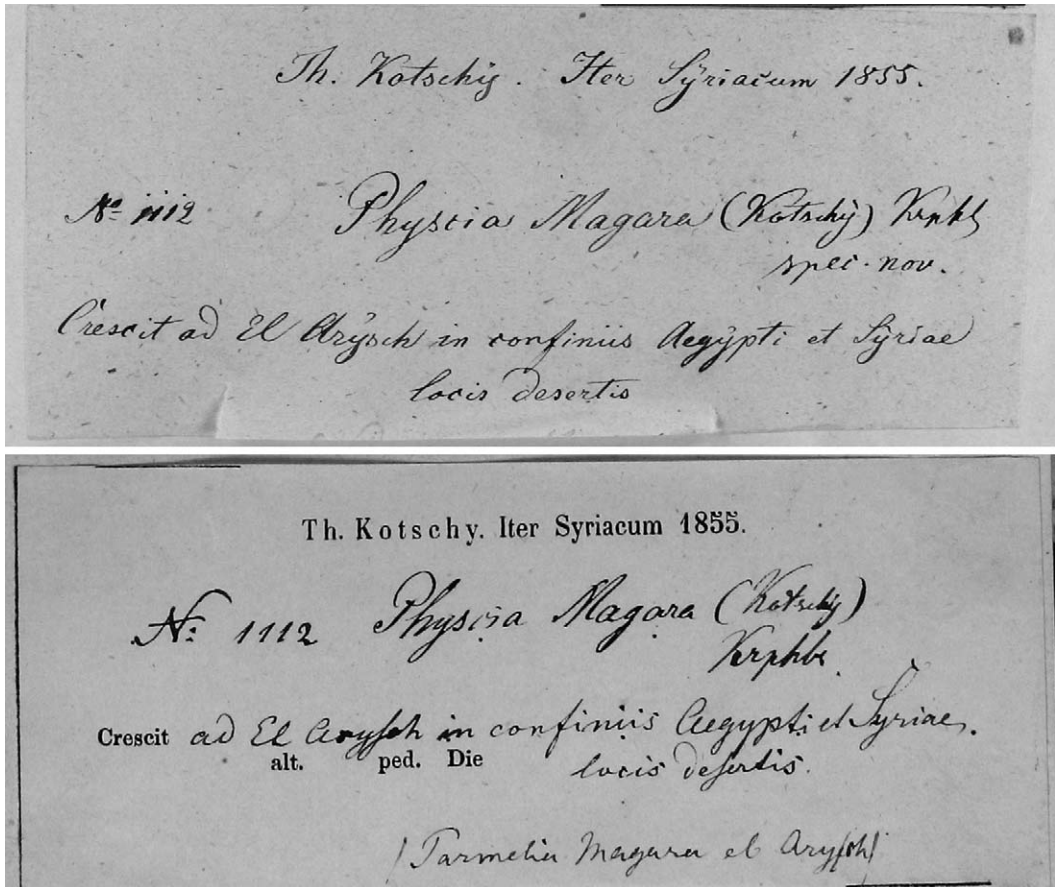 Th. Kotschÿ. Iter Sÿriacum 1855.
No 1112 Physcia Magara (Kotschÿ) Krphb
spec. nov.
Crescit ad El Arÿsch in confiniis Aegÿpti et Sÿriae
locis desertis
Th. Kotschy. Iter Syriacum 1855.
N: 1112 Physcia Magara (Kotschÿ)
Krphbr.
Crescit ad El Arysch in confiniis Aegypti et Syriae.
alt. ped. Die locis desertis.
(Parmelia Magara el Arysch)